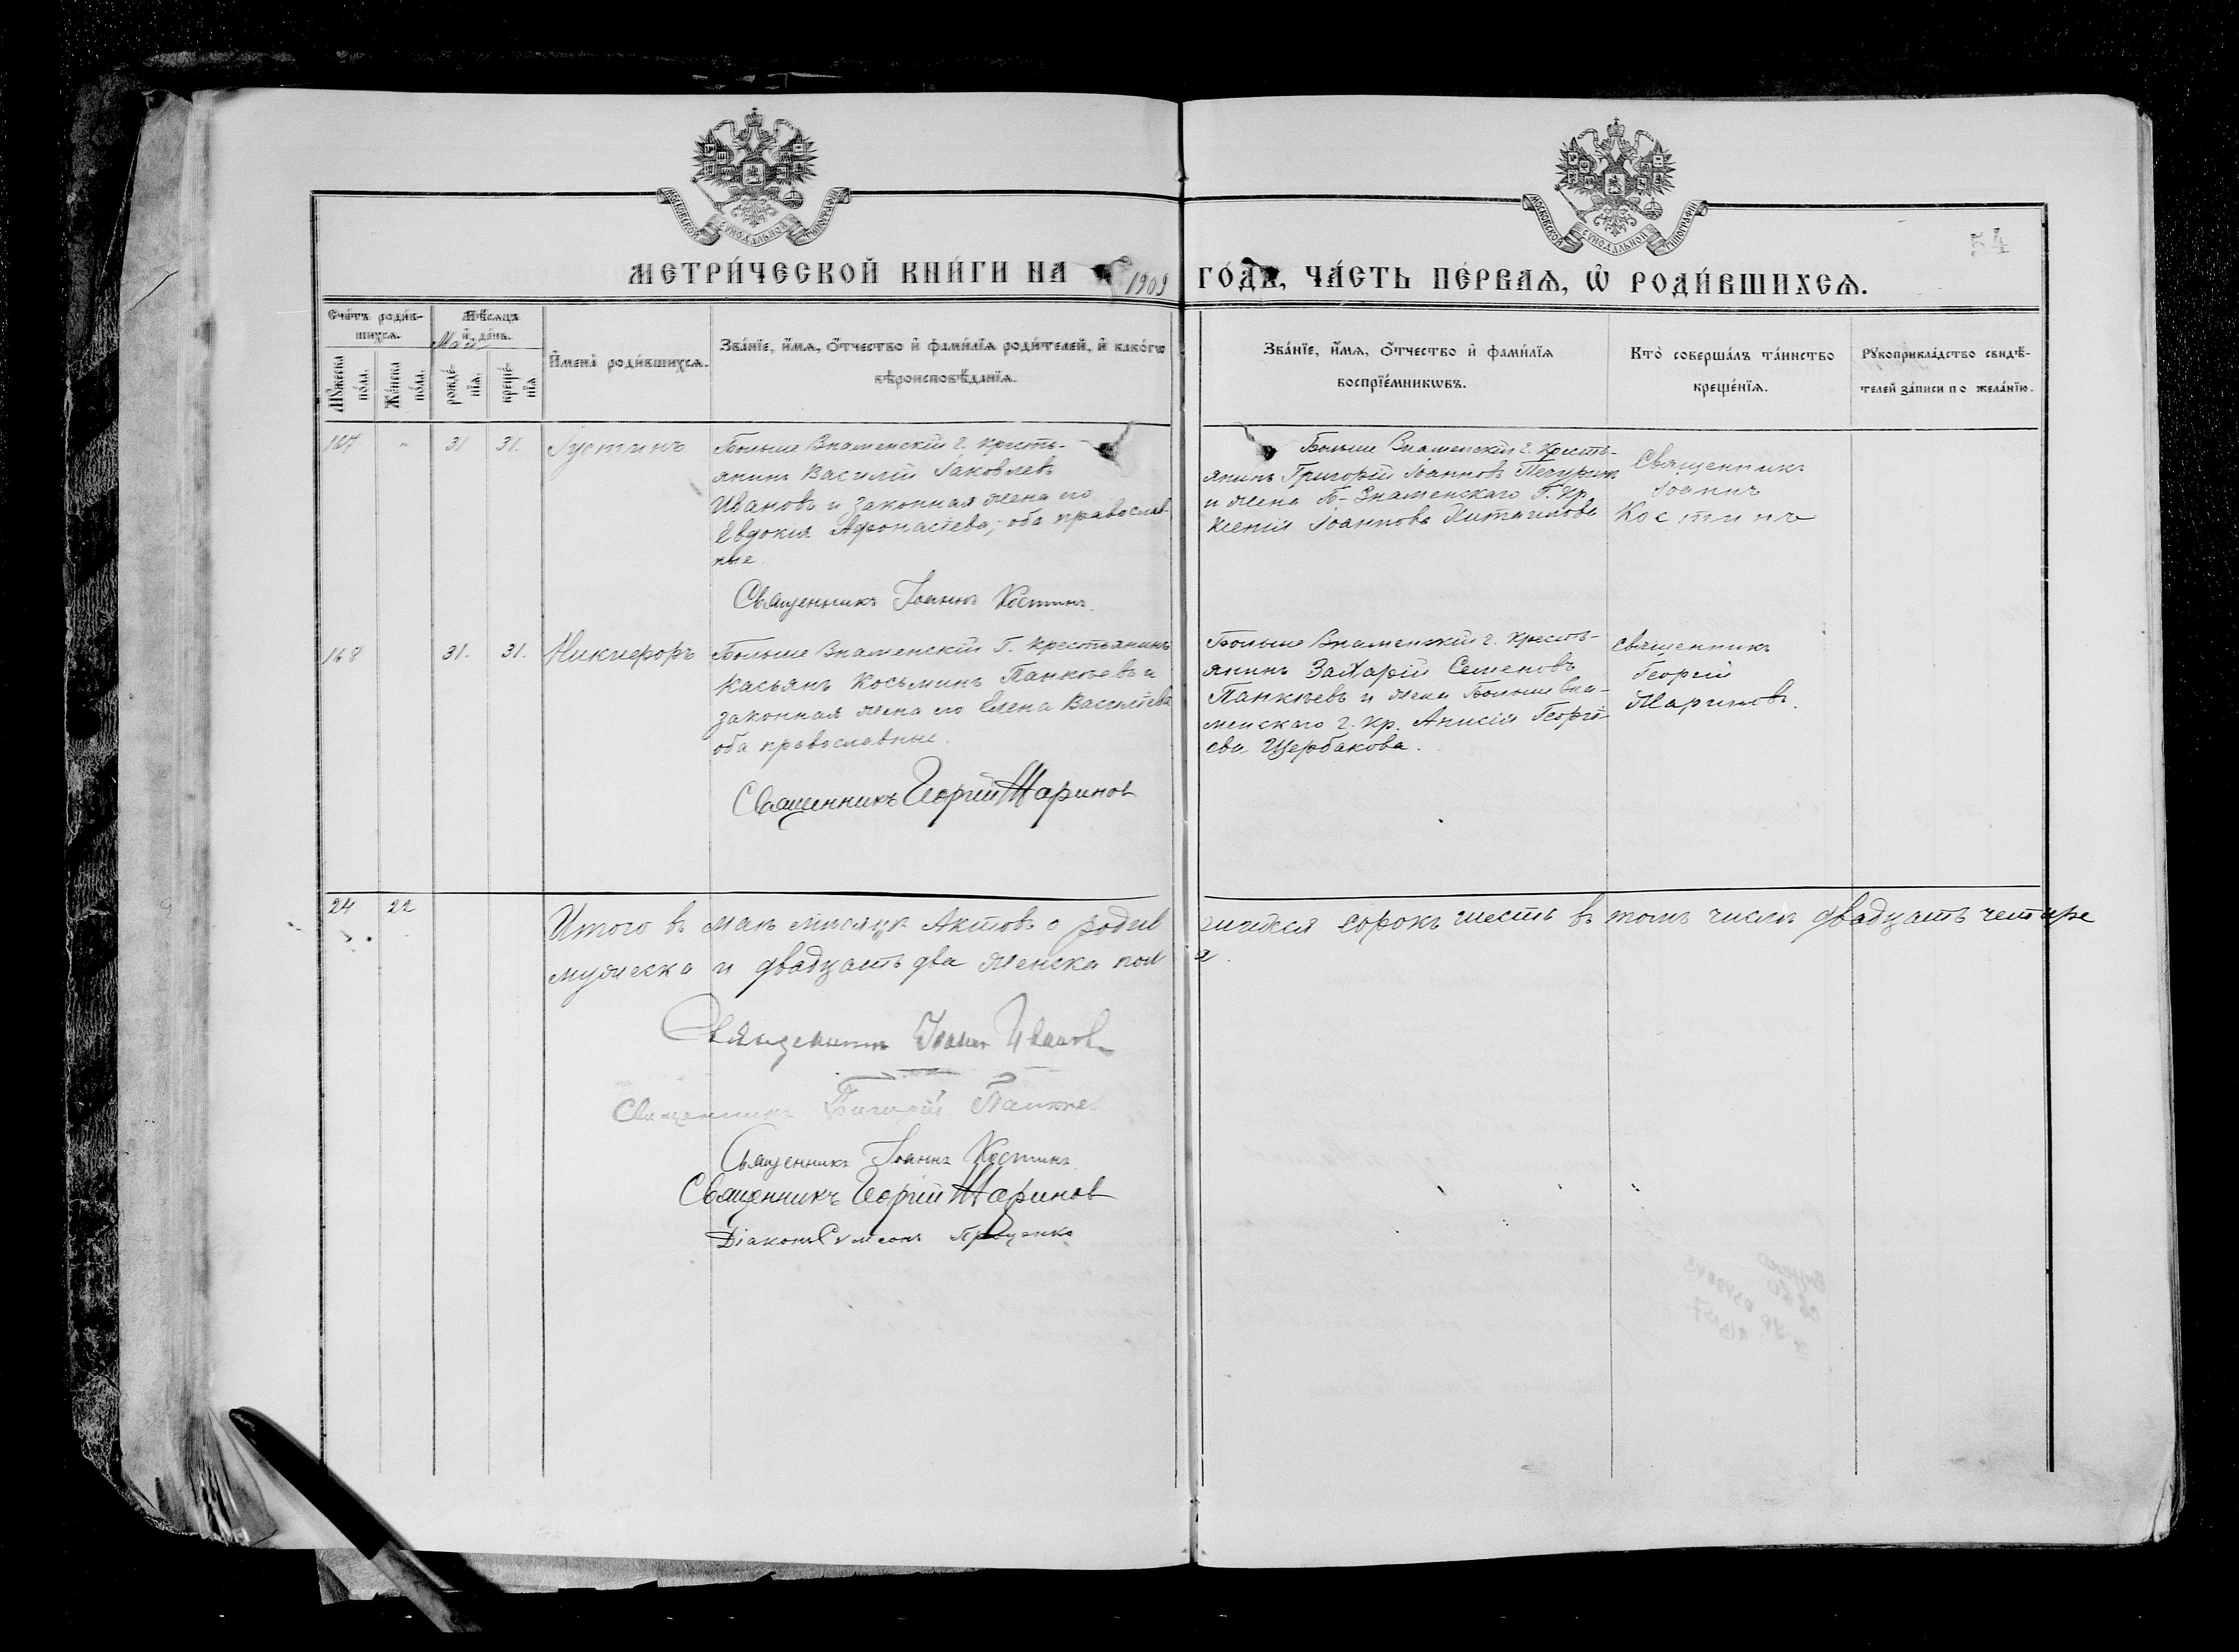 МОСКОВСКОЙ СѴНОДАЛЬНОЙ ТИПОГРАФІИ
МОСКОВСКОЙ СѴНОДАЛЬНОЙ ТИПОГРАФІИ
54
МЕТРИ́ЧЕСКОЙ КНИ́ГИ НА 1909 ГО́ДА, ЧА́СТЬ ПЕ́РВАѦ, Ѡ҆ РОДИ́ВШИХСѦ.
Сче́тъ роди́в-
шихсѧ.
Мꙋ́жеска по́ла.
Же́нска по́ла.
Мѣ́сѧцъ
и҆ де́нь.
Май
рожде́-
нїѧ.
креще́-
нїѧ
И҆мена̀ роди́вшихсѧ.
Зва́нїе, и҆́мѧ, ѻ҆́тчество и҆ фами́лїѧ роди́телей, и҆ како́гѡ
вѣроисповѣ́данїѧ.
Зва́нїе, и҆́мѧ, ѻ҆́тчество и҆ фами́лїѧ
воспрїе́мникѡвъ.
Кто̀ соверша́лъ та́инство
креще́нїѧ.
Рꙋкоприкла́дство свидѣ́-
телей за́писи по жела́нїю.
167
"
31
31.
Іустинъ
Больше Знаменскій г. кресть-
янинъ Василій Іаковлевъ
Ивановъ и законная жена его
Евдокія Афонасіева, оба православ-
ные.
Священникъ Іоаннъ Костинъ.
Больше Знаменскій г. кресть-
янинъ Григорій Іоанновъ
и жена Б-Знаменскаго Г. Кр.
Ксенія Іоаннова
Священникъ
Іоаннъ
Костинъ
168
31.
31.
Никифоръ
Больше Знаменскій Г. крестьянинъ
Касьянъ Косьминъ Панкѣевъ и
законная жена его Елена Василіева
оба православные.
Священникъ Георгій Мариновъ
Больше Знаменскій г. кресть-
янинъ Захарій Семеновъ
Панкѣевъ и жена Больше Зна-
менскаго г. кр. Анисія Георгі-
ева Щербакова.
Священникъ
Георгій
Мариновъ.
24
22
Итого въ маѣ мѣсяцѣ Актовъ о родив шихся сорокъ шесть въ томъ числѣ двадцать четыре
мужеска и двадцать два женска пол а.
Священникъ Іоаннъ Ивановъ
Священникъ Григорій
Священникъ Іоаннъ Костинъ
Священникъ Георгій Мариновъ
Діаконъ Сумеонъ